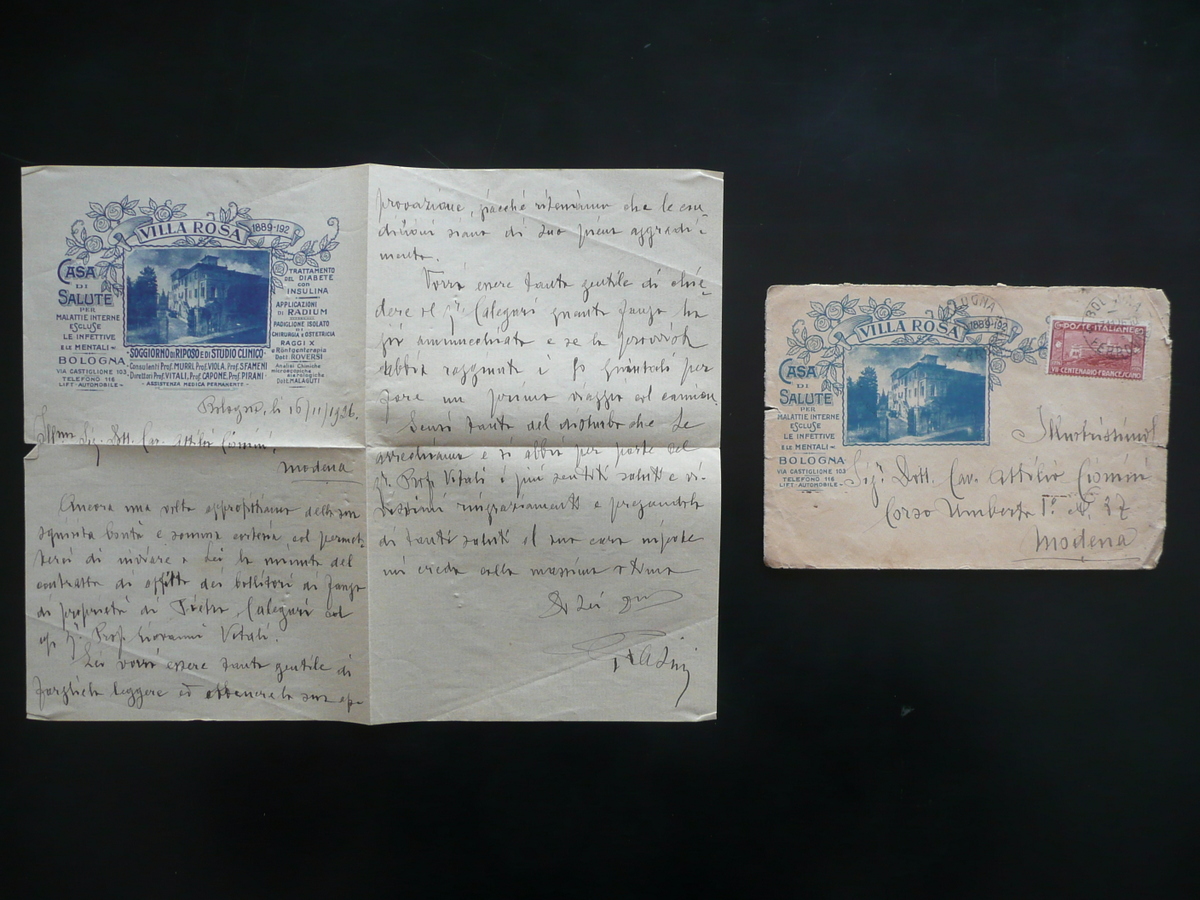 VILLA ROSA
1889-192
CASA
DI
SALUTE
PER
MALATTIE INTERNE
ESCLUSE
LE INFETTIVE
E LE MENTALI
BOLOGNA
VIA CASTIGLIONE 103
TELEFONO 116
LIFT-AUTOMOBILE
TRATTAMENTO
DEL DIABETE
CON
INSULINA
APPLICAZIONI
DI RADIUM
PADIGLIONE ISOLATO
CHIRURGIA E OSTETRICIA
RAGGI X
e Röntgenterapia
Dott. ROVERSI
Analisi Chimiche
microscopiche
Dott. MALAGUTI
SOGGIORNO DI RIPOSO E DI STUDIO CLINICO
Consulenti Prof. MURRI, Prof. VIOLA, Prof. SFAMENI
Direttori Prof. VITALI, Prof. CAPONE, Prof. PIRANI
ASSISTENZA MEDICA PERMANENTE
Bologna, li 16/11/1926.
Sig. Dott. Cav. Attilio
Modena
Ancora una volta approfittiamo della sua
squisita bontà e somma cortesia col permet-
terci di inviare a Lei la minuta del
contratto di affitto dei bollitori di fango
di proprietà di Pietro Calegari col
Prof. Giovanni Vitali.
Lei vorrà essere tanto gentile di
fargliela leggere ed ottenere la sua ap-
provazione, giacché riteniamo che le con-
dizioni siano di suo pieno aggradi-
mento.
Vorrà essere tanto gentile di chie-
dere al Calegari quanto fango ha
già ammucchiato e se lo
abbia raggiunto i quintali per
fare un primo viaggio col camion.
Scusi tanto del disturbo che Le
arrechiamo e si abbia per parte del
Prof. Vitali i più sentiti saluti e vi-
vissimi ringraziamenti e pregandola
di tanti saluti al suo caro nipote
mi creda colla massima stima
Di Lei
VILLA ROSA
1889-192
CASA
DI
SALUTE
PER
MALATTIE INTERNE
ESCLUSE
LE INFETTIVE
E LE MENTALI
BOLOGNA
VIA CASTIGLIONE 103
TELEFONO 116
LIFT-AUTOMOBILE
BOLOGNA
FERROVIA
POSTE ITALIANE 60
VII CENTENARIO FRANCESCANO
Sig. Dott. Cav. Attilio
Corso Umberto I° N. 37
Modena